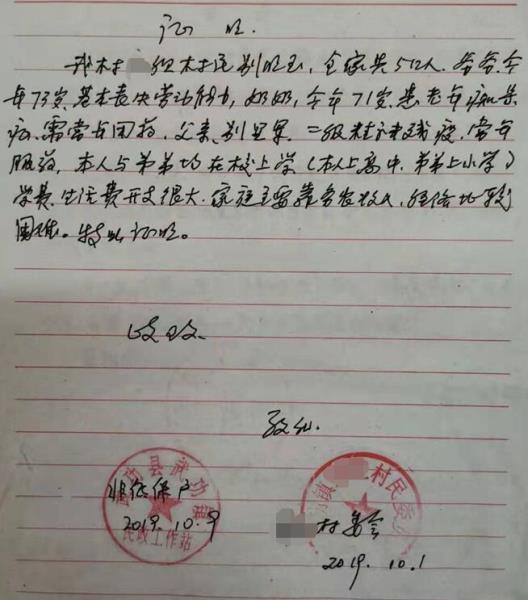 证 明
我村 组村民别旺玉，全家共5口人，爷爷今
年73岁，基本丧失劳动能力，奶奶，今年71岁，患老年痴呆
病，需常年用药，父亲，别 果，二级精神残疾，常年
服药，本人与弟弟均在校上学（本人上高中，弟弟上小学）
学费、生活费开支很大，家庭主要靠务农收入，经济比较
困难。特此证明。
此致
敬礼
县武功镇
民政工作站
非低保户
2019.10.9
镇 村民委员
村委会
2019.10.1